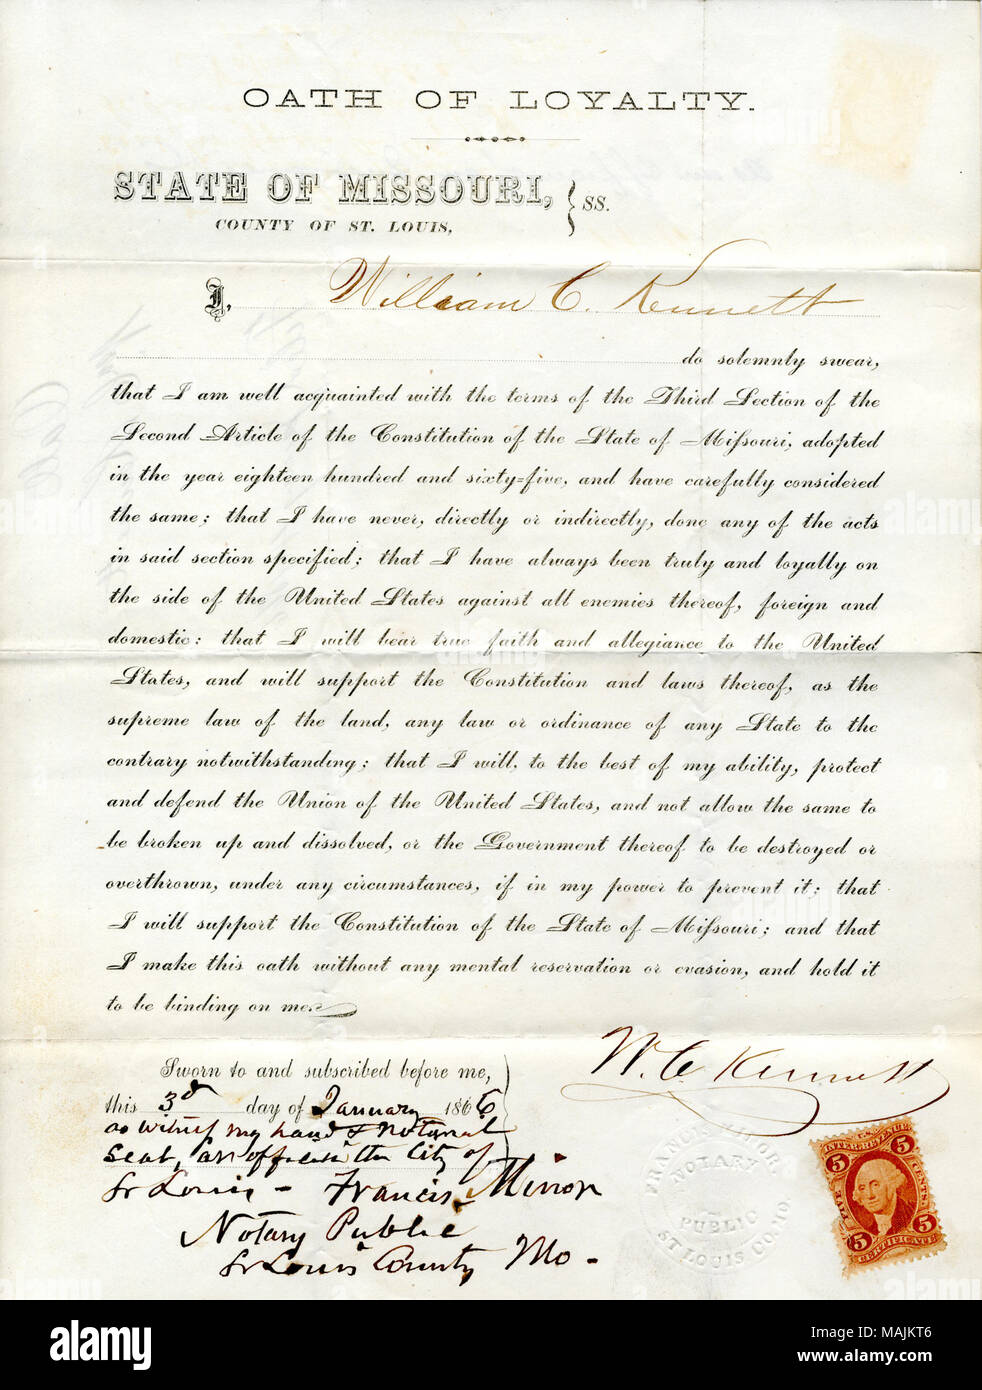 OATH OF LOYALTY.
STATE OF MISSOURI,
COUNTY OF ST. LOUIS, } SS.
I, William C. Kennett
do solemnly swear,
that I am well acquainted with the terms of the Third Section of the
Second Article of the Constitution of the State of Mißouri, adopted
in the year eighteen hundred and sixty=five, and have carefully considered
the same; that I have never, directly or indirectly, done any of the acts
in said section specified; that I have always been truly and loyally on
the side of the United States against all enemies thereof, foreign and
domestic: that I will bear true faith and allegiance to the United
States, and will support the Constitution and laws thereof, as the
supreme law of the land, any law or ordinance of any State to the
contrary notwithstanding; that I will, to the best of my ability, protect
and defend the Union of the United States, and not allow the same to
be broken up and dissolved, or the Government thereof to be destroyed or
overthrown, under any circumstances, if in my power to prevent it; that
I will support the Constitution of the State of Mißouri; and that
I make this oath without any mental reservation or evasion, and hold it
to be binding on me.
W. C. Kennett
Sworn to and subscribed before me,
this 3d day of January 1866
as witness my hand & notarial
Seal, at office in the City of
St Louis - Francis Minor
Notary Public
St Louis County Mo -
FRANCIS MINOR
NOTARY
PUBLIC
ST LOUIS CO. MO
U.S. INTER. REVENUE
5 5
FIVE CENTS
5 5
CERTIFICATE
alamy
alamy
Image ID: MAJKT6
www.alamy.com